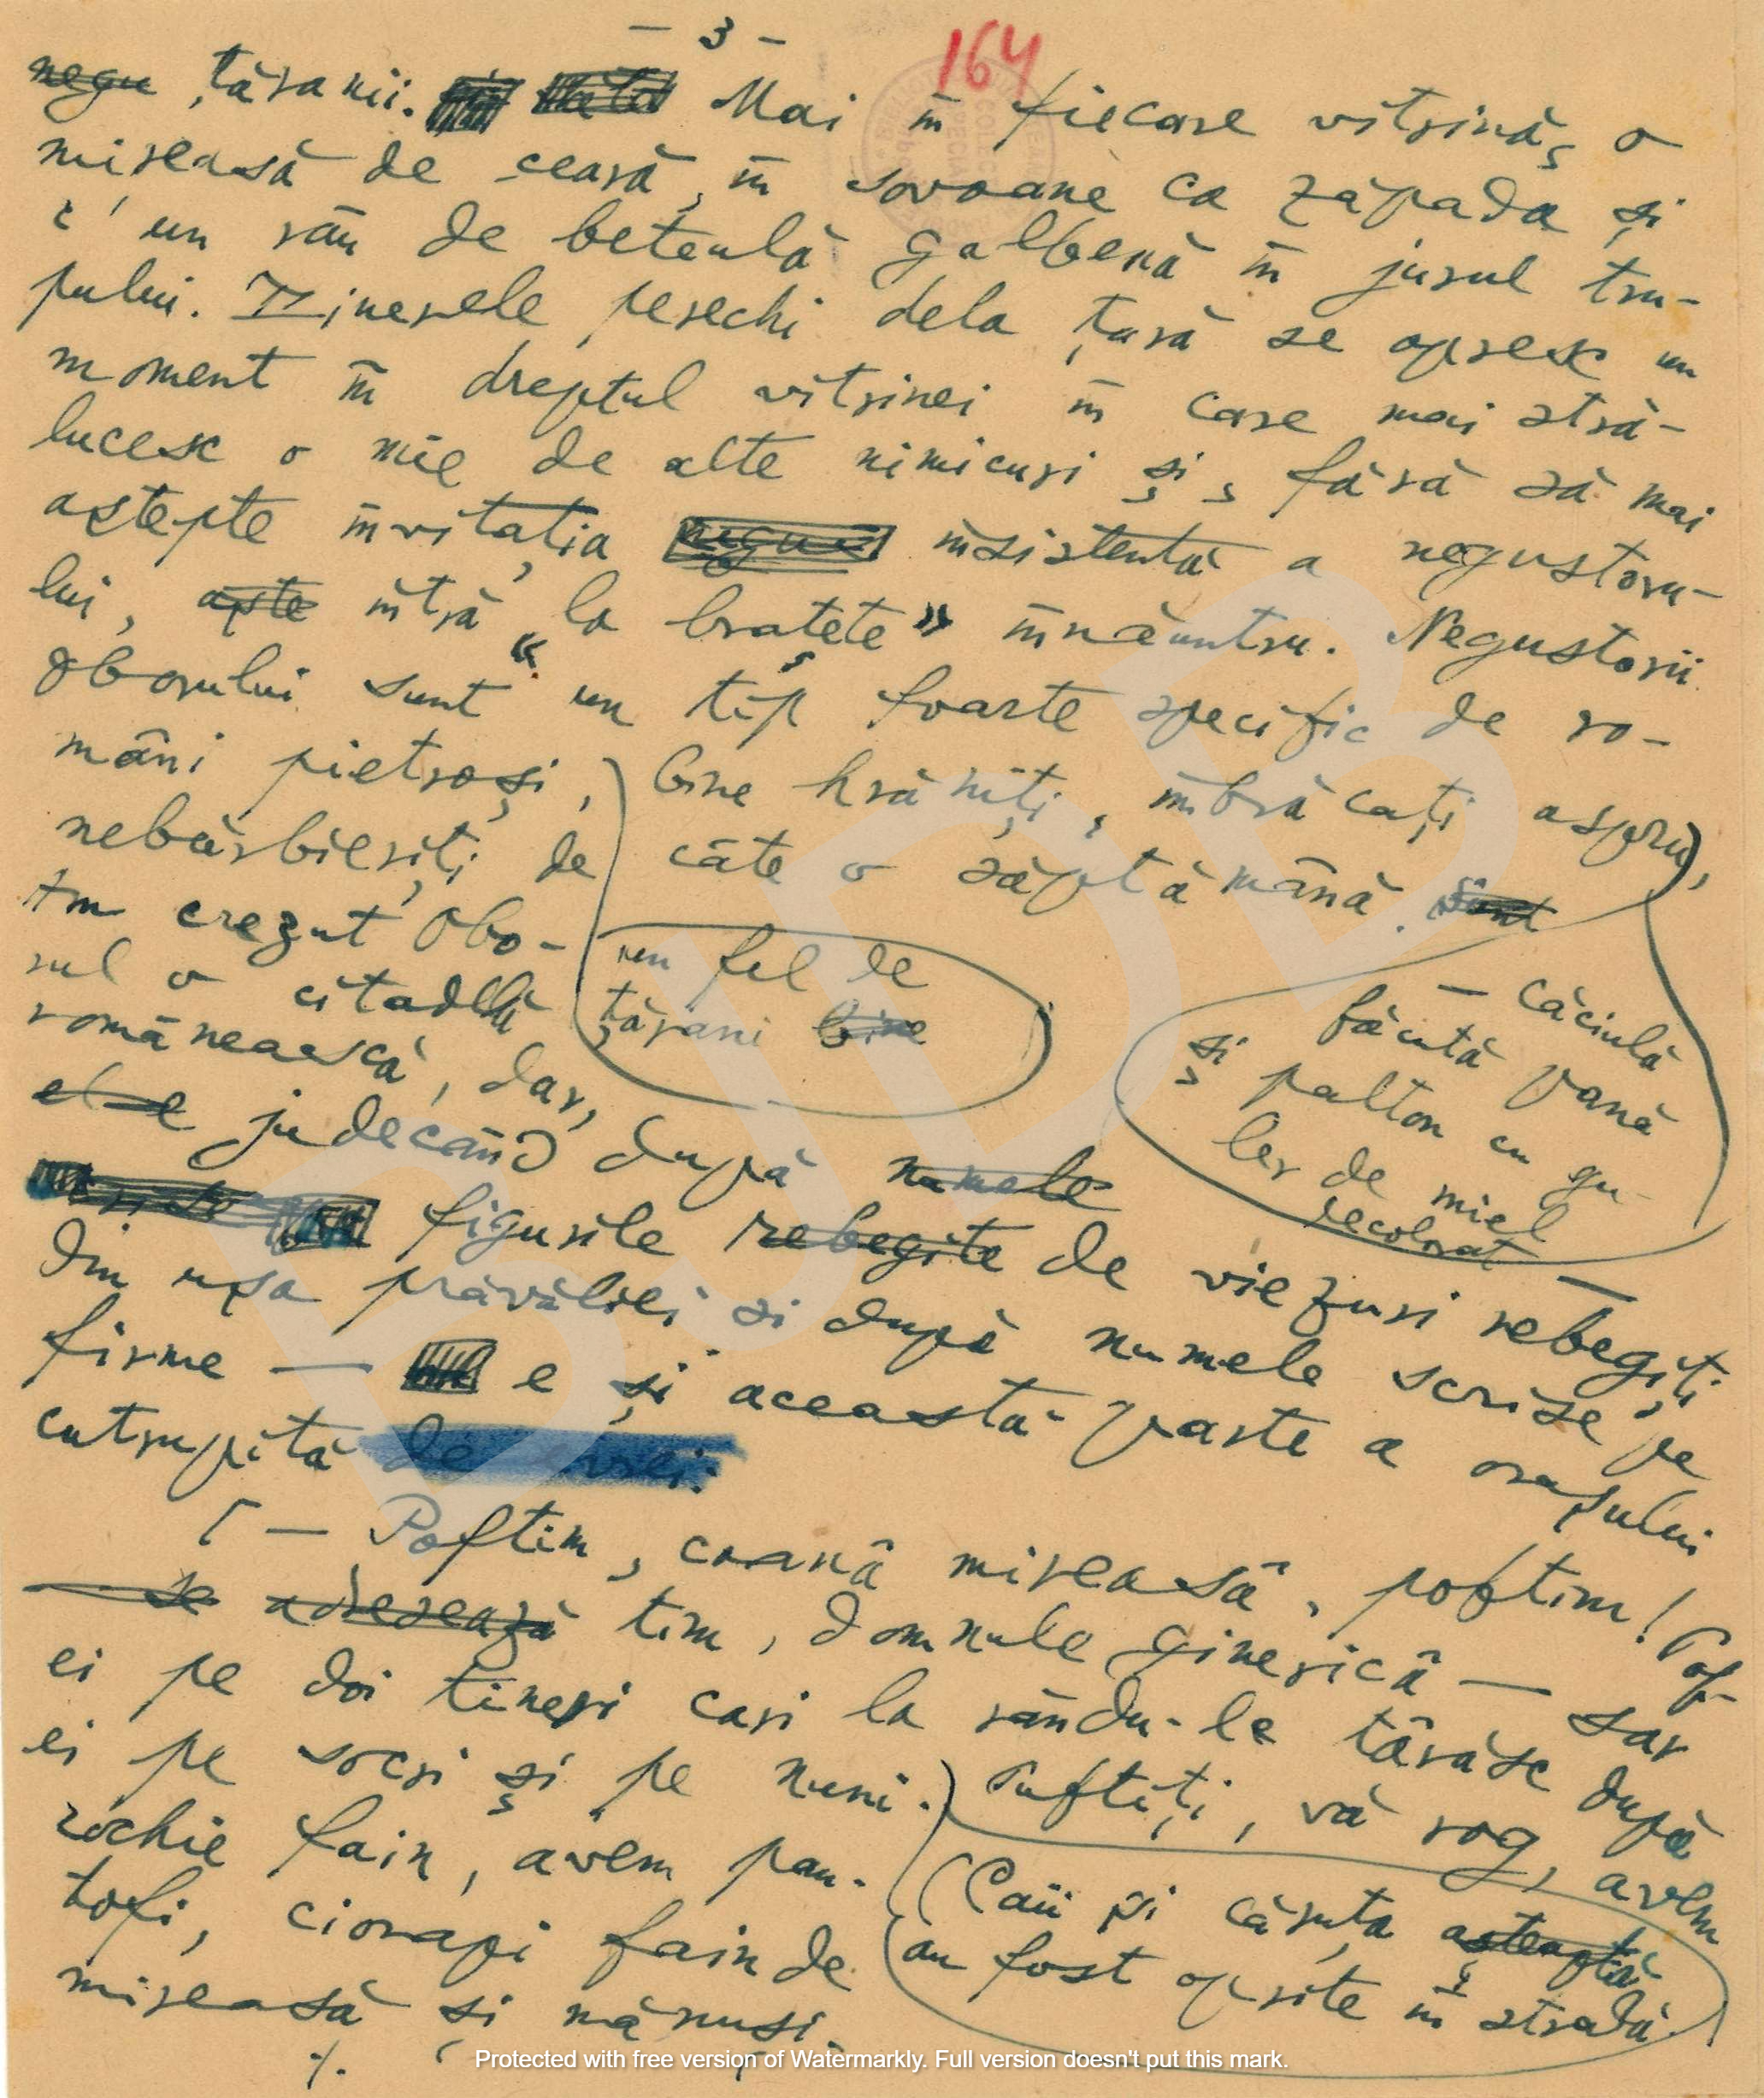 - 3 -
164
negu țăranii. Mai în fiecare vitrină, o
mireasă de ceară, în voroane ca zăpada și
c'un râu de beteală galbenă în jurul tru-
pului. Tinerele perechi dela țară se opresc un
moment în dreptul vitrinei în care mai stră-
lucesc o mie de alte nimicuri și, fără să mai
aștepte invitația insistentă a negustoru-
lui, aște intră „la brațete” înnăuntru. Negustorii
Oborului sunt un tip foarte specific de ro-
mâni pietroși, bine hrăniți, îmbrăcați aspru,
nebărbieriți de câte o săptămână. Sunt
un fel de
țărani bine
— căciulă
făcută oană
și palton cu gu-
ler de miel
decolorat —
Am crezut Obo-
rul o citadelă
românească, dar,
judecând după numele
figurile rebegite de viezuri rebegiți
din ușa prăvăliei și după numele scrise pe
firme — e și această parte a orașului
cutropită de evrei.
— Poftim, coană mireasă, poftim! Pof-
se adresează tim, domnule ginerică — sar
ei pe doi tineri cari la rându-le târăsc după
ei pe socri și pe nuni. Puftiți, vă rog, avem
rochie fain, avem pan-
tofi, ciorapi fain de
mireasă și mănuși.
(Caii și căruța așteaptă
au fost oprite în stradă.)
./.
Protected with free version of Watermarkly. Full version doesn't put this mark.
BJDB